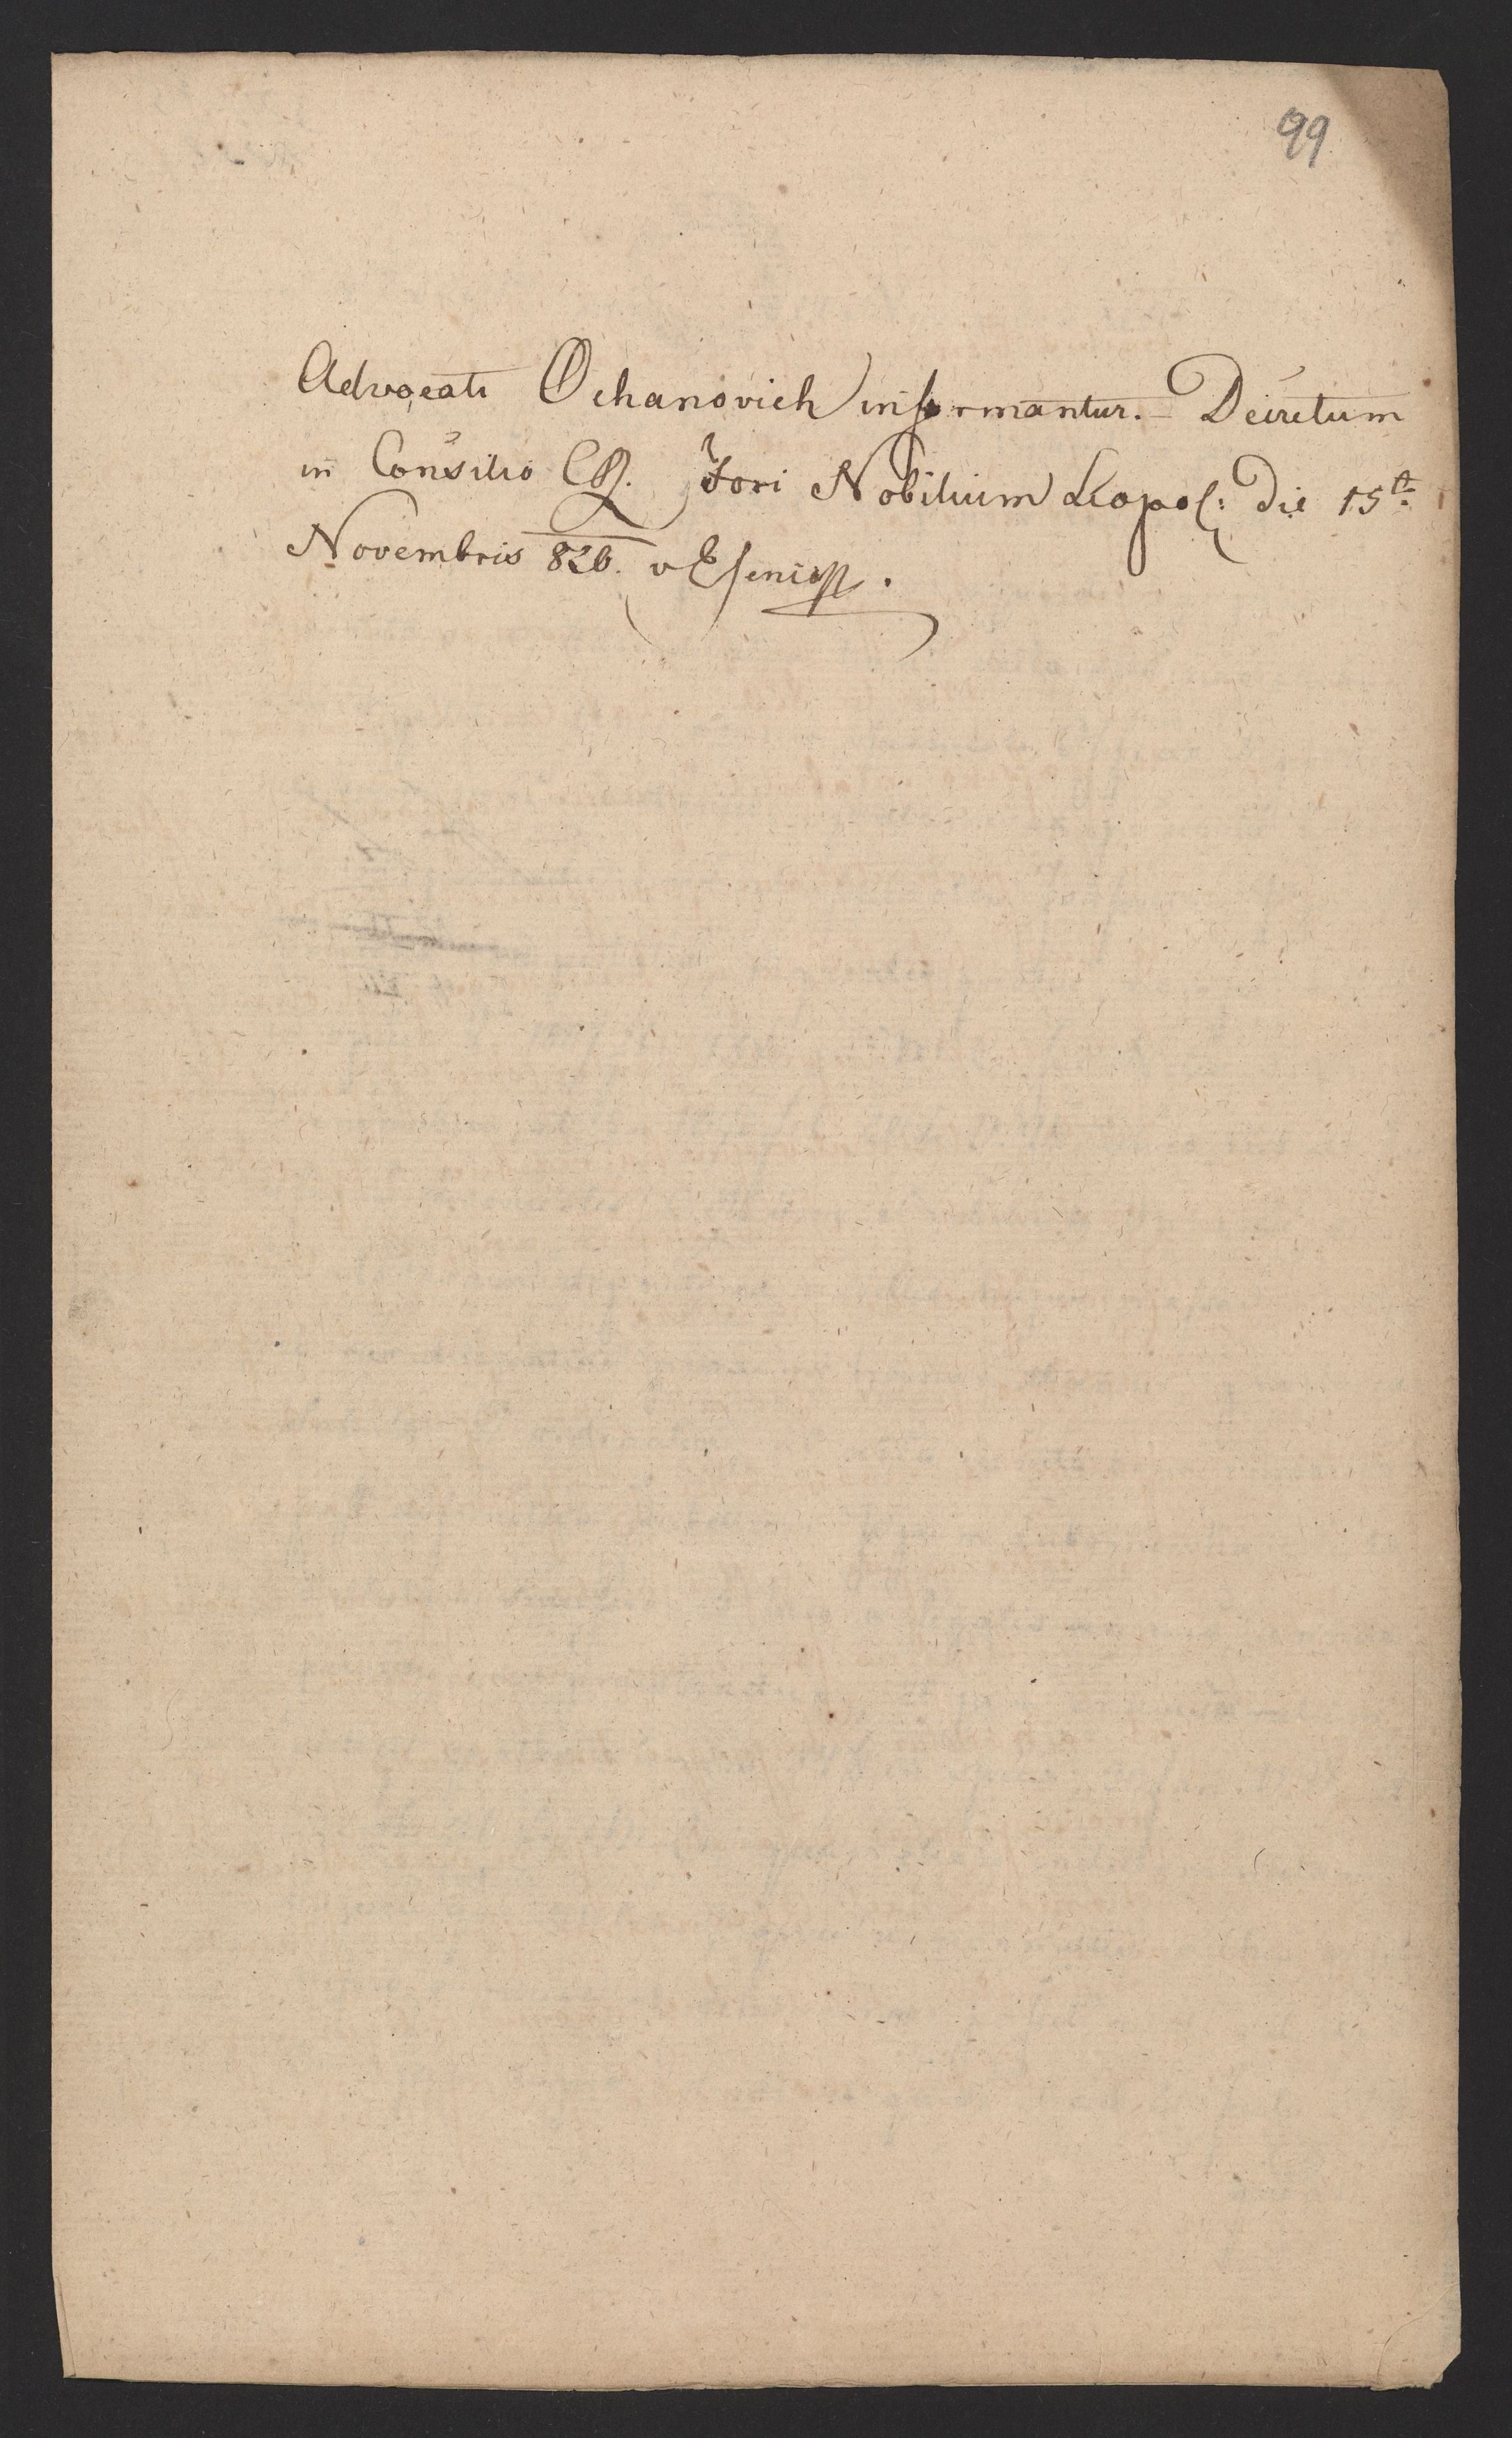 99
Advocati Ochanovich informantur. – Decretum
in Consilio CR. Fori Nobilium Leopol: Die 15ta
Novembris 826.